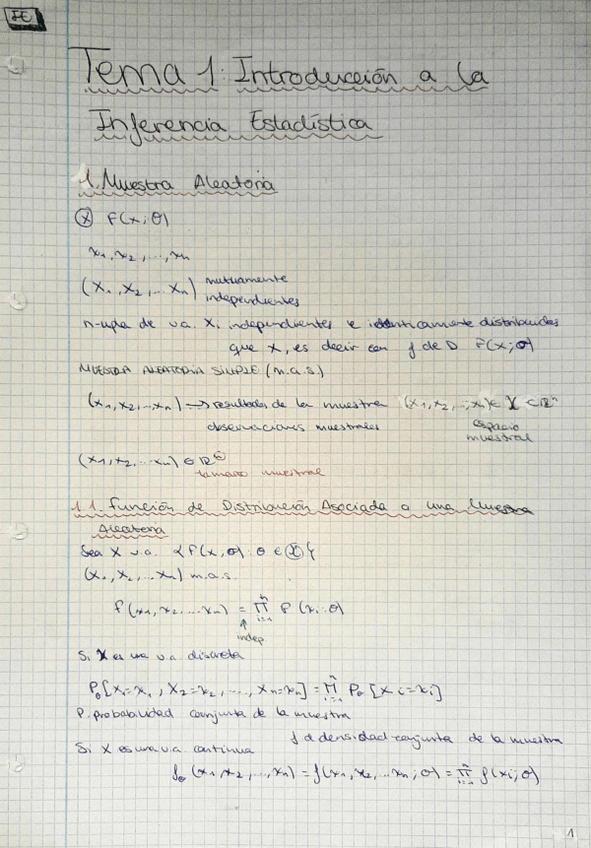 IE
Tema 1: Introducción a la
Inferencia Estadística
1. Muestra Aleatoria
Ⓧ F(x; θ)
x₁, x₂, ..., xₙ
(X₁, X₂, ... Xₙ) mutuamente
independientes
n-upla de v.a. Xᵢ independientes e idénticamente distribuidas
que X, es decir con f de D F(x; θ)
MUESTRA ALEATORIA SIMPLE (m.a.s.)
(x₁, x₂, ... xₙ) → resultados de la muestra (x₁, x₂, ..., xₙ) ∈ χ ⊂ ℝⁿ
observaciones muestrales espacio
muestral
(x₁, x₂, ... xₙ) ∈ ℝⁿ
tamaño muestral
1.1. Función de Distribución Asociada a una Muestra
Aleatoria
Sea X v.a. {F(x, θ) : θ ∈ Ⓗ}
(X₁, X₂, ... Xₙ) m.a.s.
F(x₁, x₂, ... xₙ) = ∏ᵢ₌₁ⁿ F(xᵢ; θ)
↑
indep
Si X es una v.a. discreta
Pθ[X₁=x₁, X₂=x₂, ..., Xₙ=xₙ] = ∏ᵢ₌₁ⁿ Pθ[Xᵢ=xᵢ]
P. probabilidad conjunta de la muestra
f d densidad conjunta de la muestra
Si X es una v.a. continua
fθ(x₁, x₂, ..., xₙ) = f(x₁, x₂, ... xₙ; θ) = ∏ᵢ₌₁ⁿ f(xᵢ; θ)
1